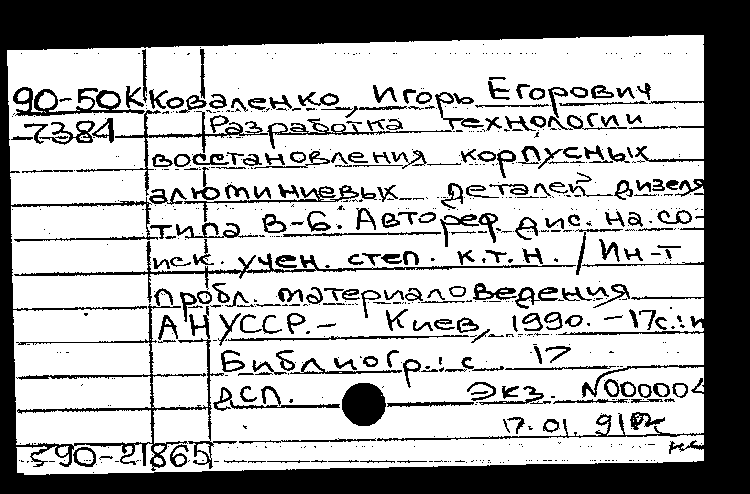 90-50К Коваленко, Игорь Егорович
7384 Разработка технологии
восстановления корпусных
алюминиевых деталей дизеля
типа В-6. Автореф дис. на со-
иск. учен. степ. к.т.н. / Ин-т
пробл. материаловедения
АН УССР. - Киев, 1990. - 17с.: и
Библиогр.: с. 17
ДСП. Экз. N000004
17.01.91
390-21865